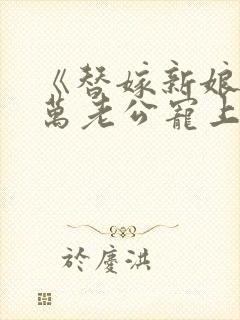 《替嫁新娘
萬老公寵上
於慶洪